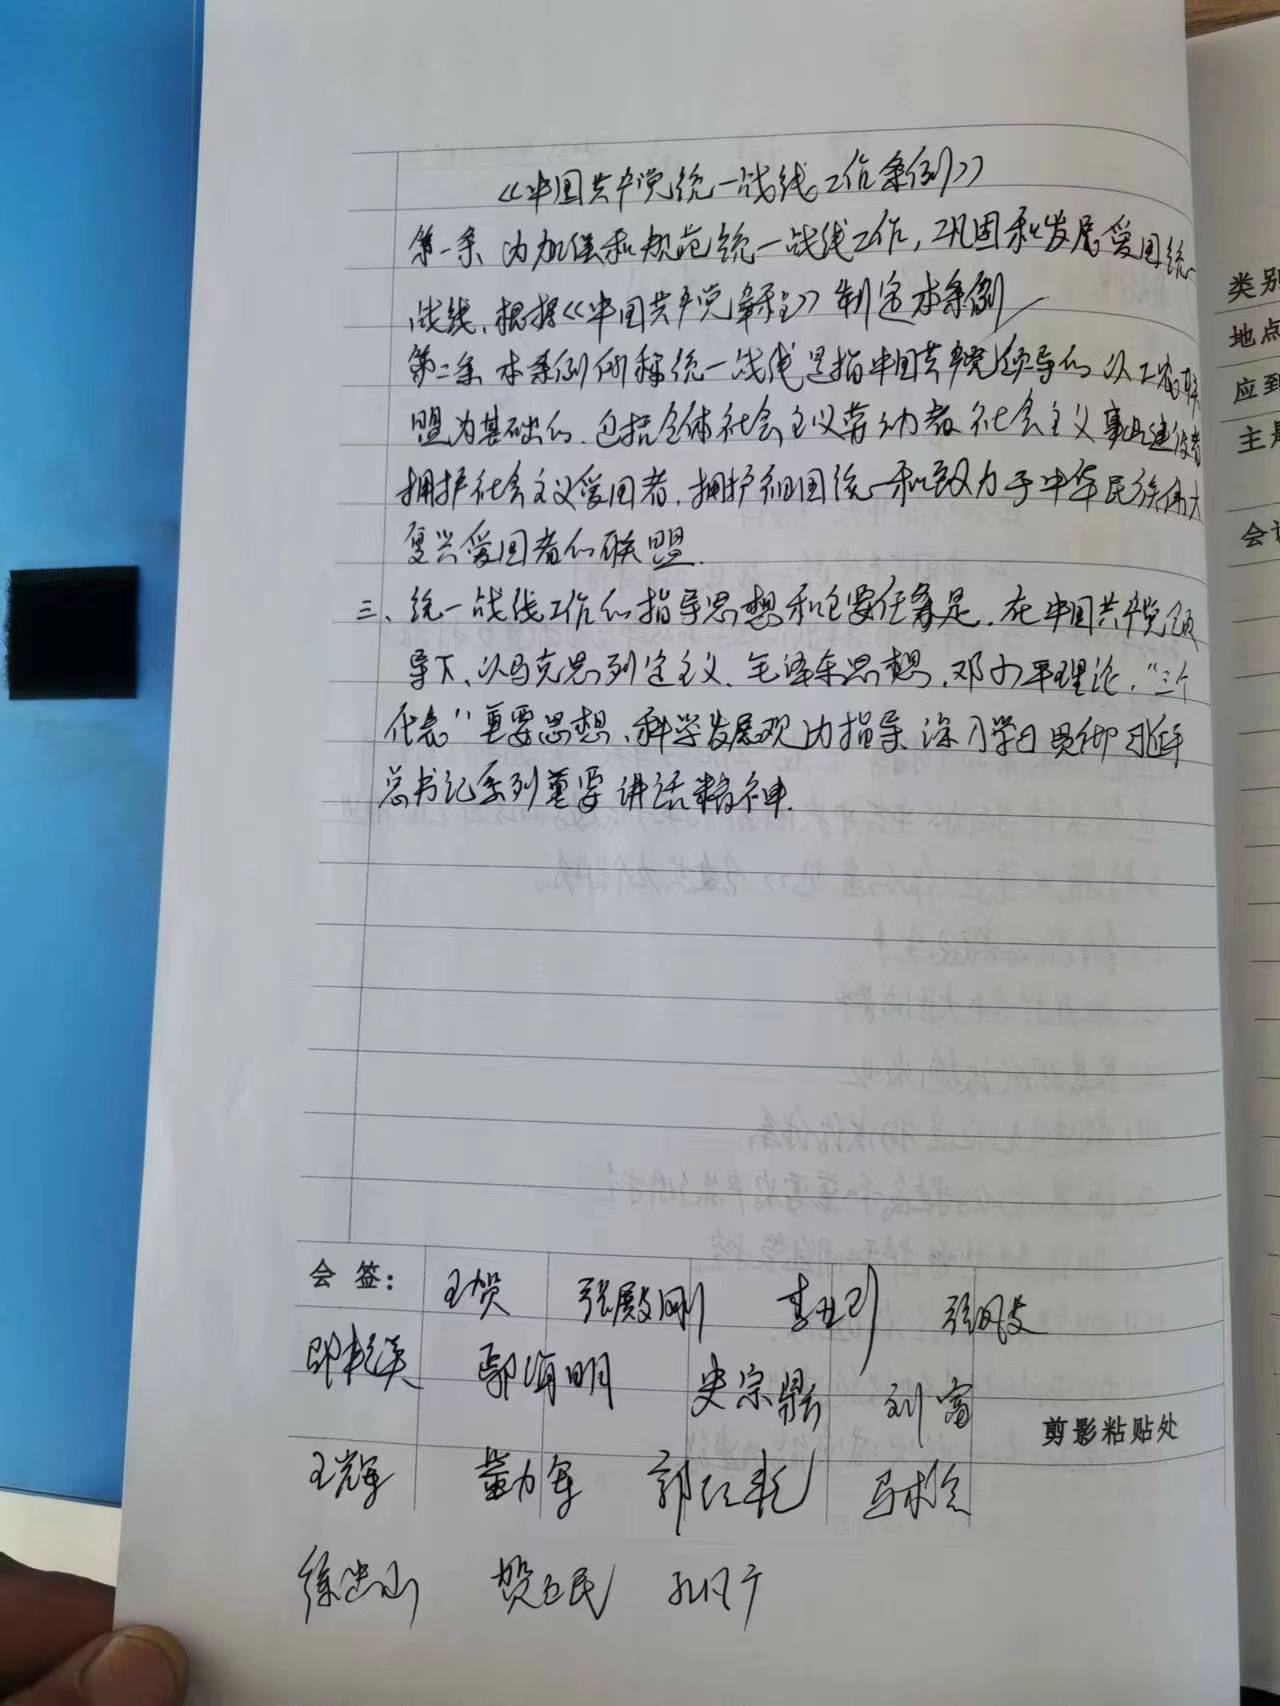 《中国共产党统一战线工作条例》
第一条 为加强和规范统一战线工作,巩固和发展爱国统一
战线,根据《中国共产党章程》制定本条例
第二条 本条例所称统一战线是指中国共产党领导的 以工农联
盟为基础的,包括全体社会主义劳动者 社会主义事业建设者
拥护社会主义爱国者,拥护祖国统一和致力于中华民族伟大
复兴爱国者的联盟.
三、统一战线工作的指导思想和主要任务是,在中国共产党领
导下、以马克思列宁主义、毛泽东思想,邓小平理论,"三个
代表"重要思想、科学发展观为指导 深入学习贯彻习近平
总书记系列重要讲话精神.
会 签: 王贺 张殿刚 张凤文
邵艳英 鄢海明 史宗鼎 刘富
剪影粘贴处
王辉 董力军 郭红艳
徐忠山 贺立民 孔凡广
类别
地点
应到
主题
会议